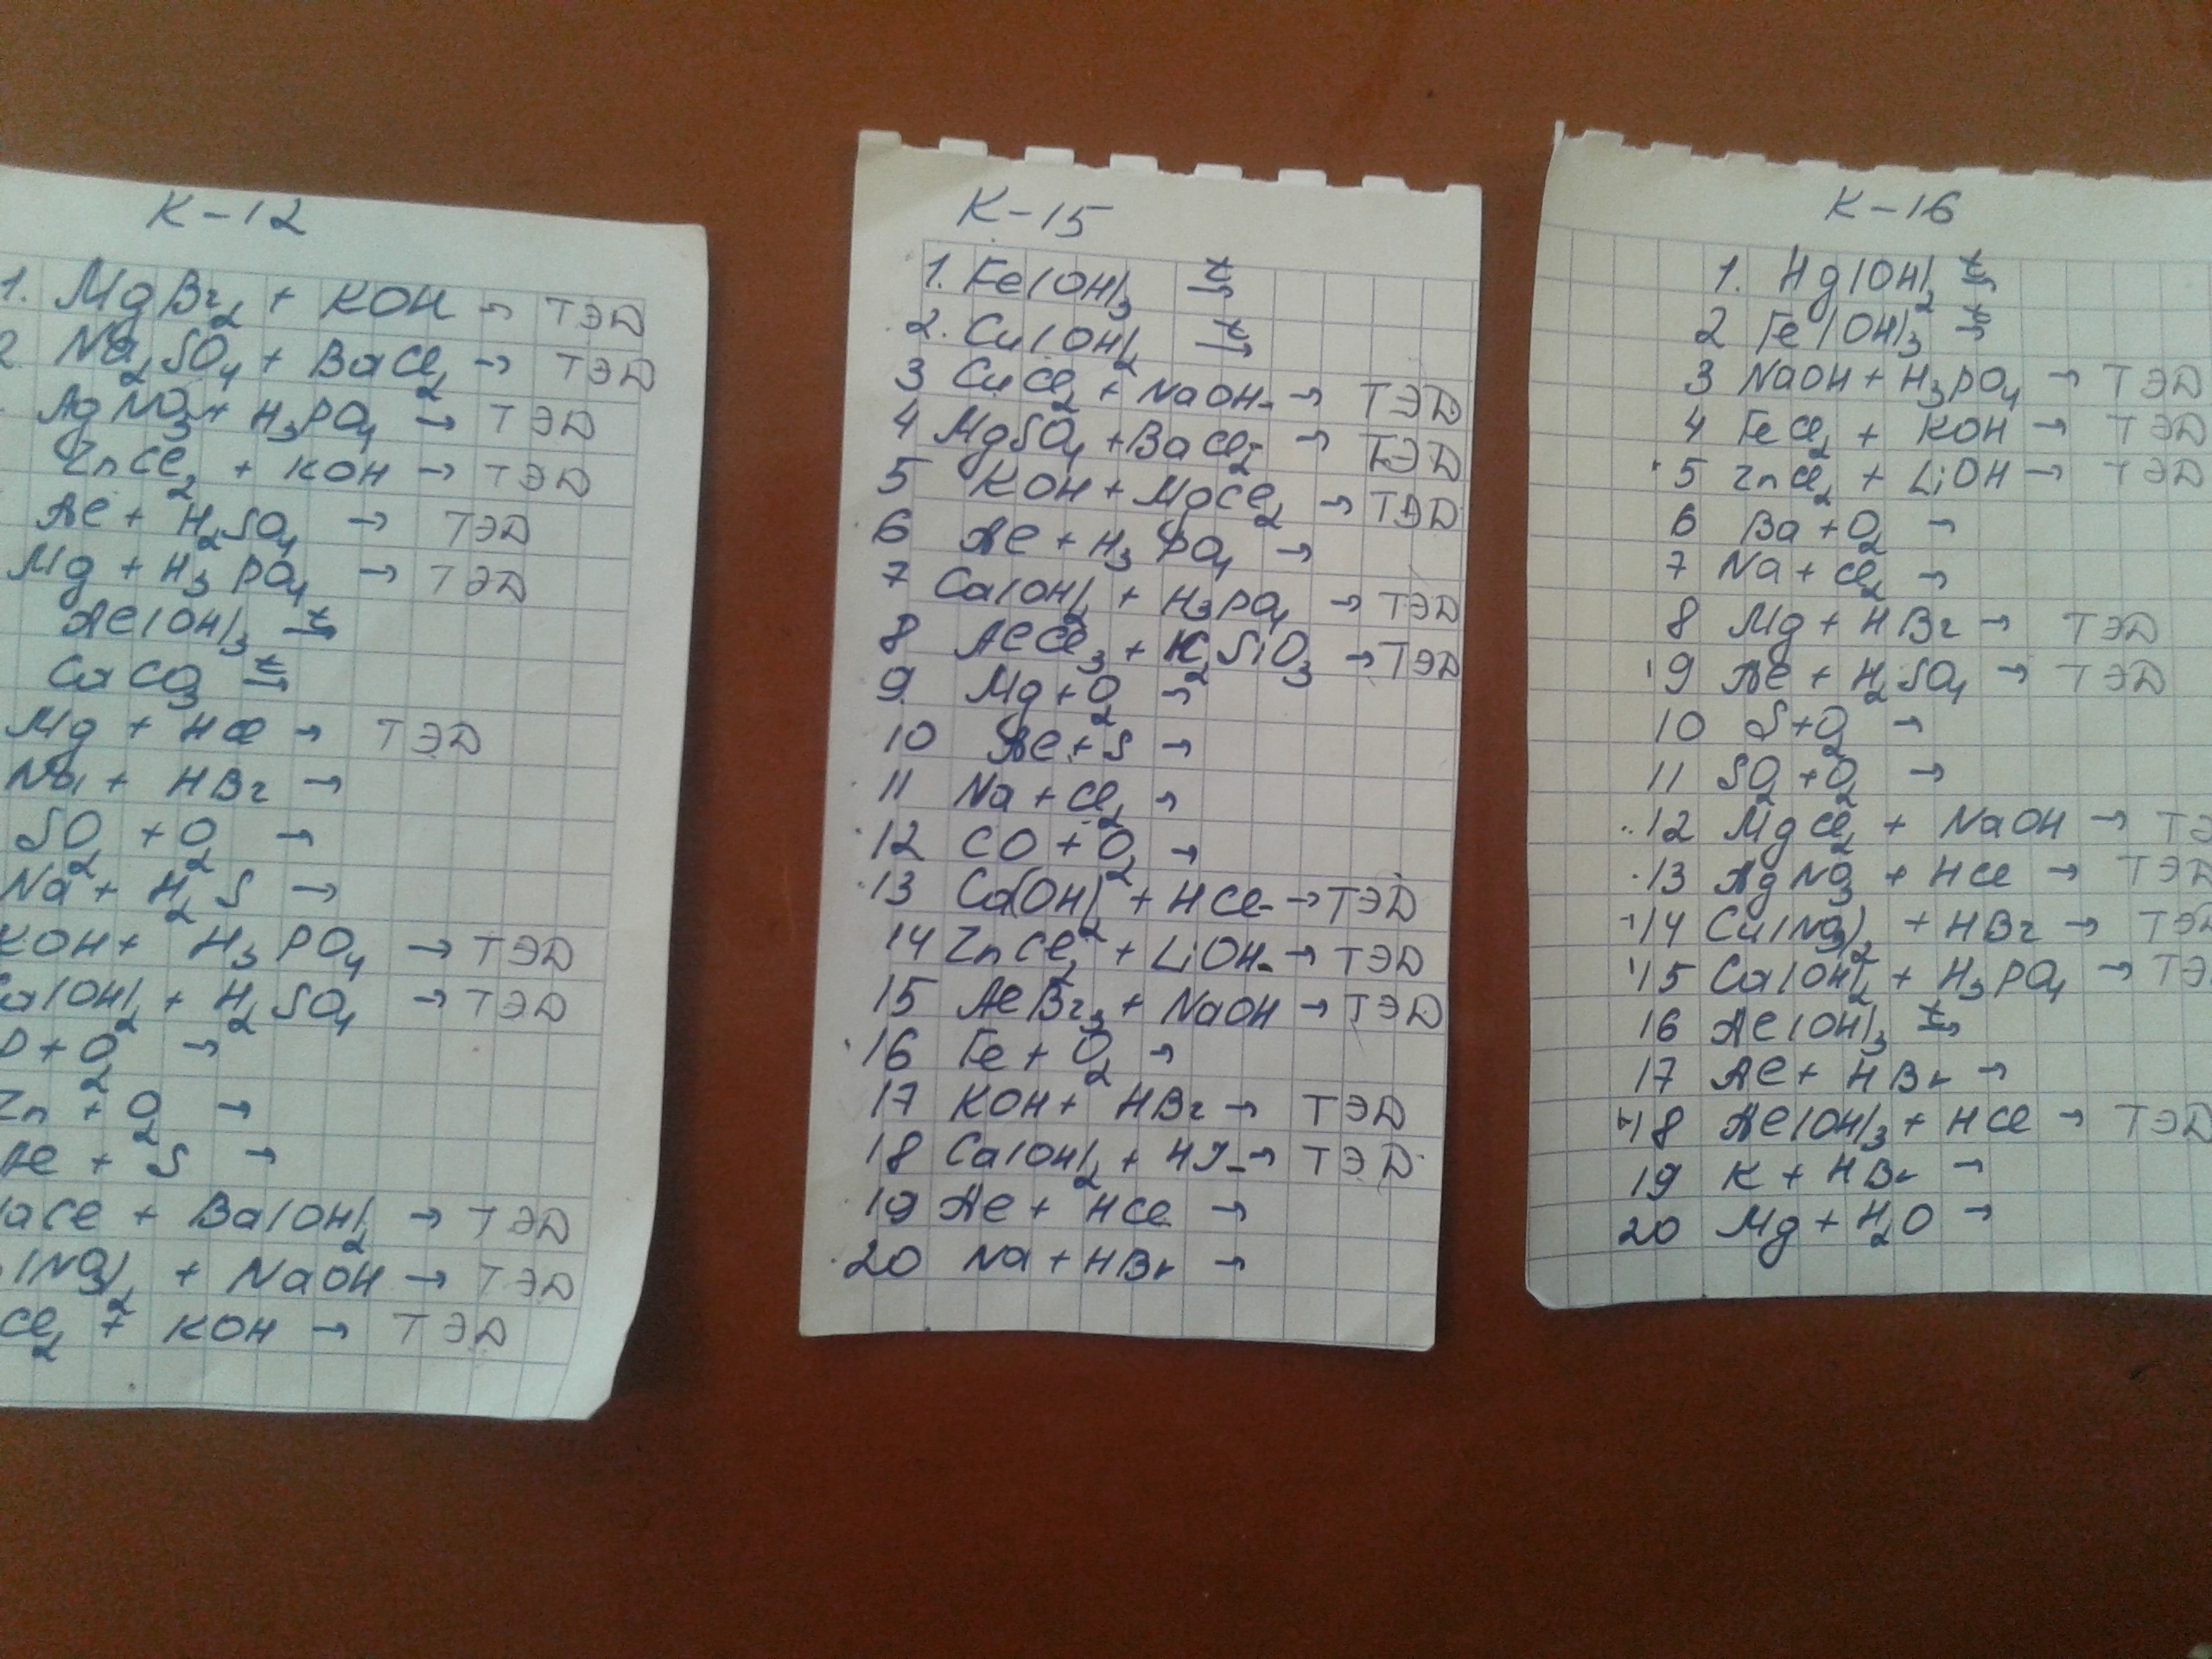 К-12
1. MgBr2 + KOH → ТЭД
2. Na2SO4 + BaCl2 → ТЭД
AgNO3 + H3PO4 → ТЭД
ZnCl2 + KOH → ТЭД
Al + H2SO4 → ТЭД
Mg + H3PO4 → ТЭД
Al(OH)3 t→
CaCO3 t→
Mg + HCl → ТЭД
Na + HBr →
SO2 + O2 →
Na + H2S →
KOH + H3PO4 → ТЭД
Ca(OH)2 + H2SO4 → ТЭД
P + O2 →
Zn + O2 →
Al + S →
+ Ba(OH)2 → ТЭД
(NO3)2 + NaOH → ТЭД
Cl2 + KOH → ТЭД
К-15
1. Fe(OH)3 t→
2. Cu(OH)2 t→
3 CuCl2 + NaOH → ТЭД
4 MgSO4 + BaCl2 → ТЭД
5 KOH + MgCl2 → ТЭД
6 Al + H3PO4 →
7 Ca(OH)2 + H3PO4 → ТЭД
8 AlCl3 + K2SiO3 → ТЭД
9 Mg + O2 →
10 Al + S →
11 Na + Cl2 →
12 CO + O2 →
13 Ca(OH)2 + HCl → ТЭД
14 ZnCl2 + LiOH → ТЭД
15 AlBr3 + NaOH → ТЭД
16 Fe + O2 →
17 KOH + HBr → ТЭД
18 Ca(OH)2 + HJ → ТЭД
19 Al + HCl →
20 Na + HBr →
К-16
1. Hg(OH)2 t→
2 Fe(OH)3 t→
3 NaOH + H3PO4 → ТЭД
4 FeCl2 + KOH → ТЭД
5 ZnCl2 + LiOH → ТЭД
6 Ba + O2 →
7 Na + Cl2 →
8 Mg + HBr → ТЭД
9 Al + H2SO4 → ТЭД
10 S + O2 →
11 SO2 + O2 →
12 MgCl2 + NaOH → ТЭ
13 AgNO3 + HCl → ТЭД
14 Cu(NO3)2 + HBr → ТЭД
15 Ca(OH)2 + H3PO4 → ТЭ
16 Al(OH)3 t→
17 Al + HBr →
18 Al(OH)3 + HCl → ТЭД
19 K + HBr →
20 Mg + H2O →